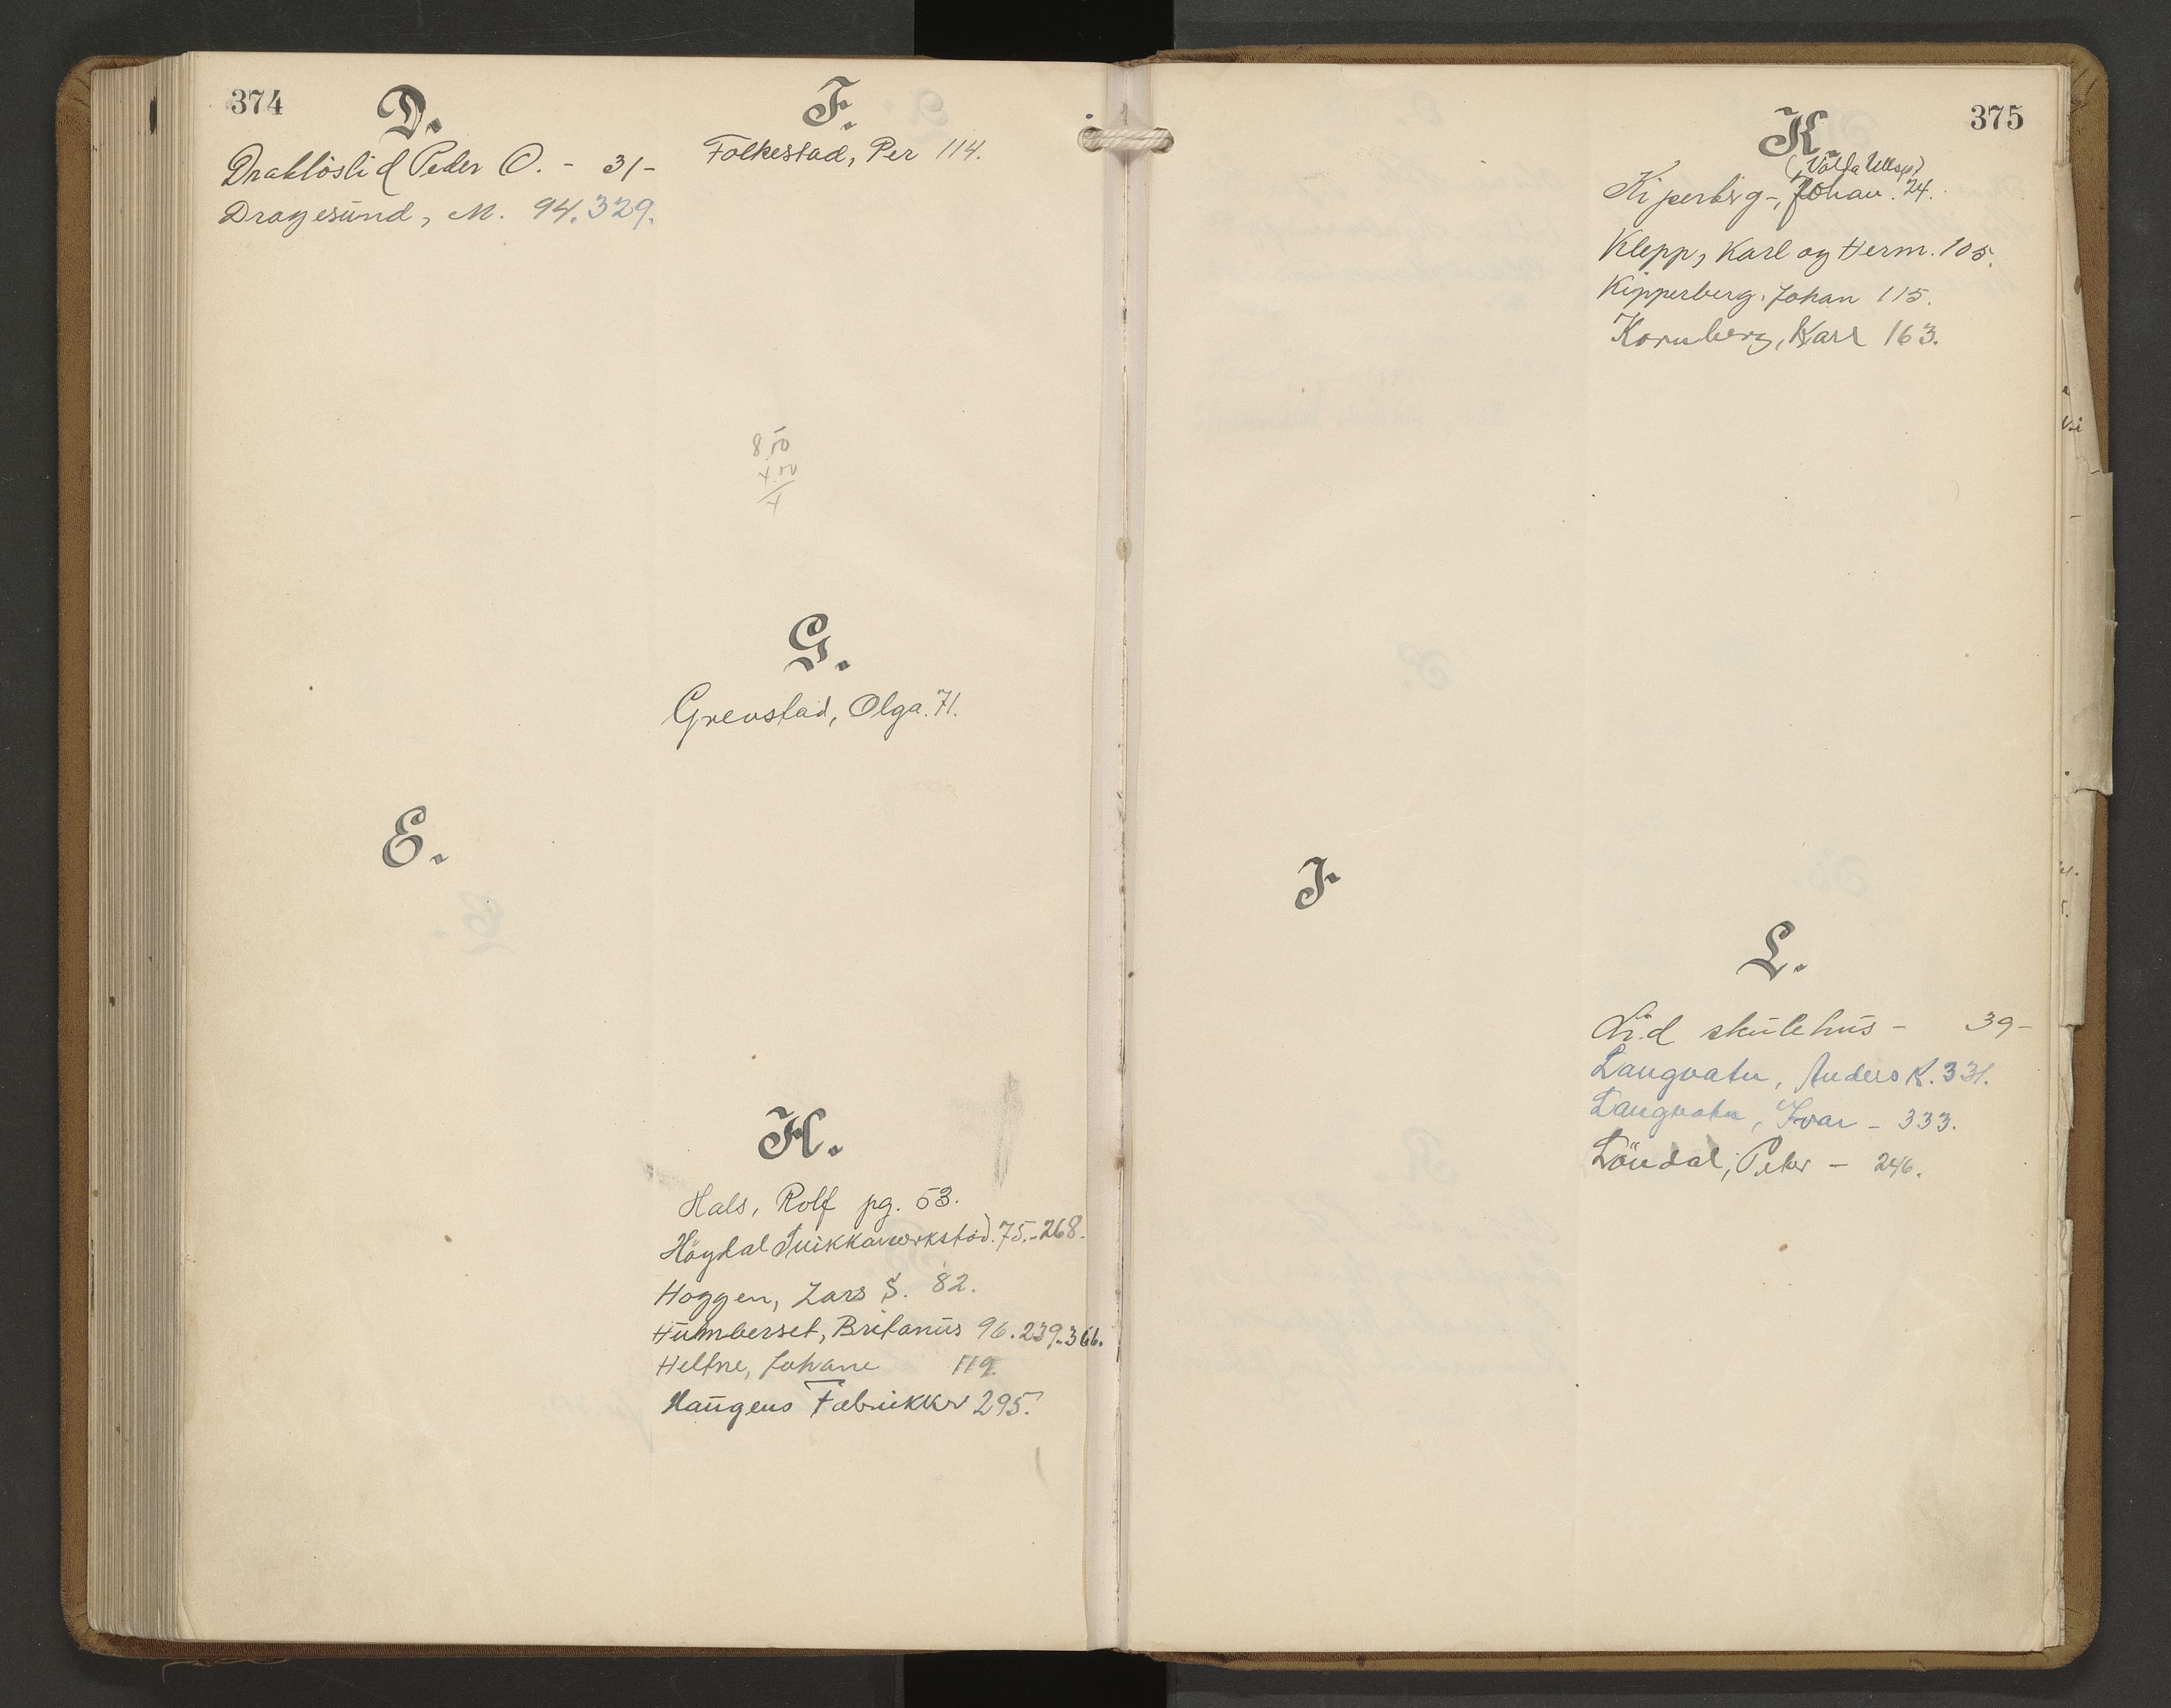 374
D.
Drabløslid Peder O. - 31-
Dragesünd, M. 94. 329.
E.
F.
Folkestad, Per 114.
8,50
G.
Grevstad, Olga. 71.
H.
Hals, Rolf pg. 53.
Höydal Snikkarverkstad. 75.-268.
Hoggen, Lars S. 82.
Hümberset, Britanüs 96. 239. 366.
Heltne, Johane 119.
Haügens Fabrikker 295.
375
J.
K.
(Volda Ullsp)
Kiperberg-, Johan. 24.
Klepp, Karl og Herm. 105.
Kipperberg. Johan 115.
Kornberg, Karl 163.
L.
Lid skülehüs - 39-
Langvatn, Anders K. 331.
Langvatn, Ivar - 333.
Löndal, Peter - 246.